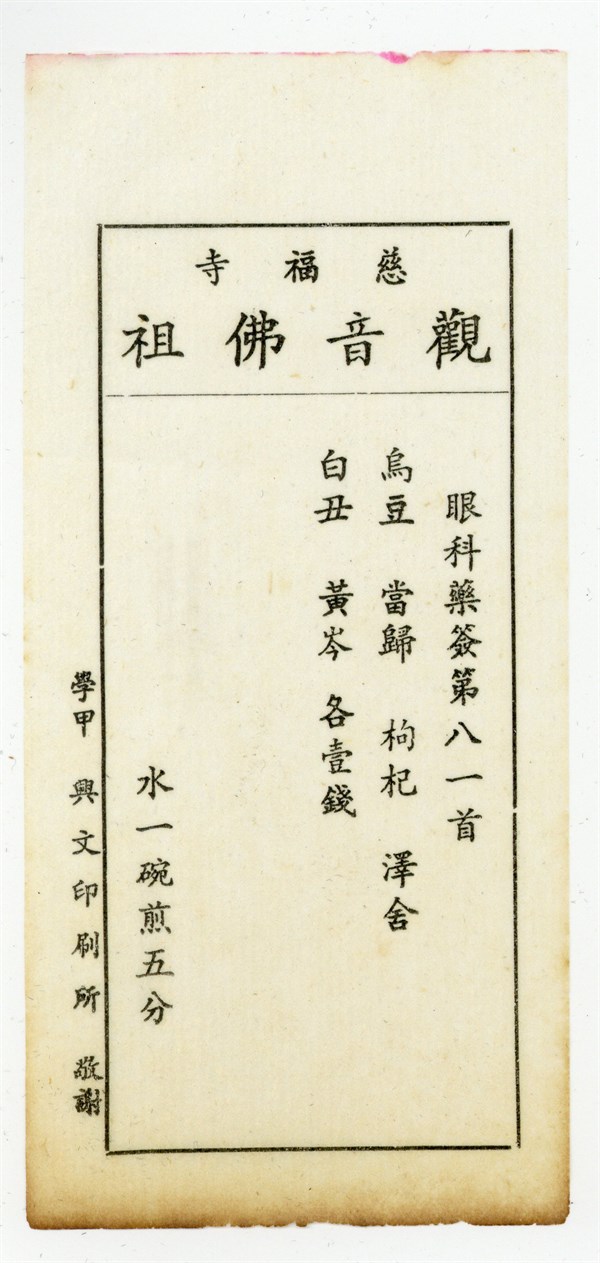 慈福寺
觀音佛祖
眼科藥簽第八一首
烏豆 當歸 枸杞 澤舍
白丑 黃岑 各壹錢
水一碗煎五分
學甲 興文印刷所 敬謝